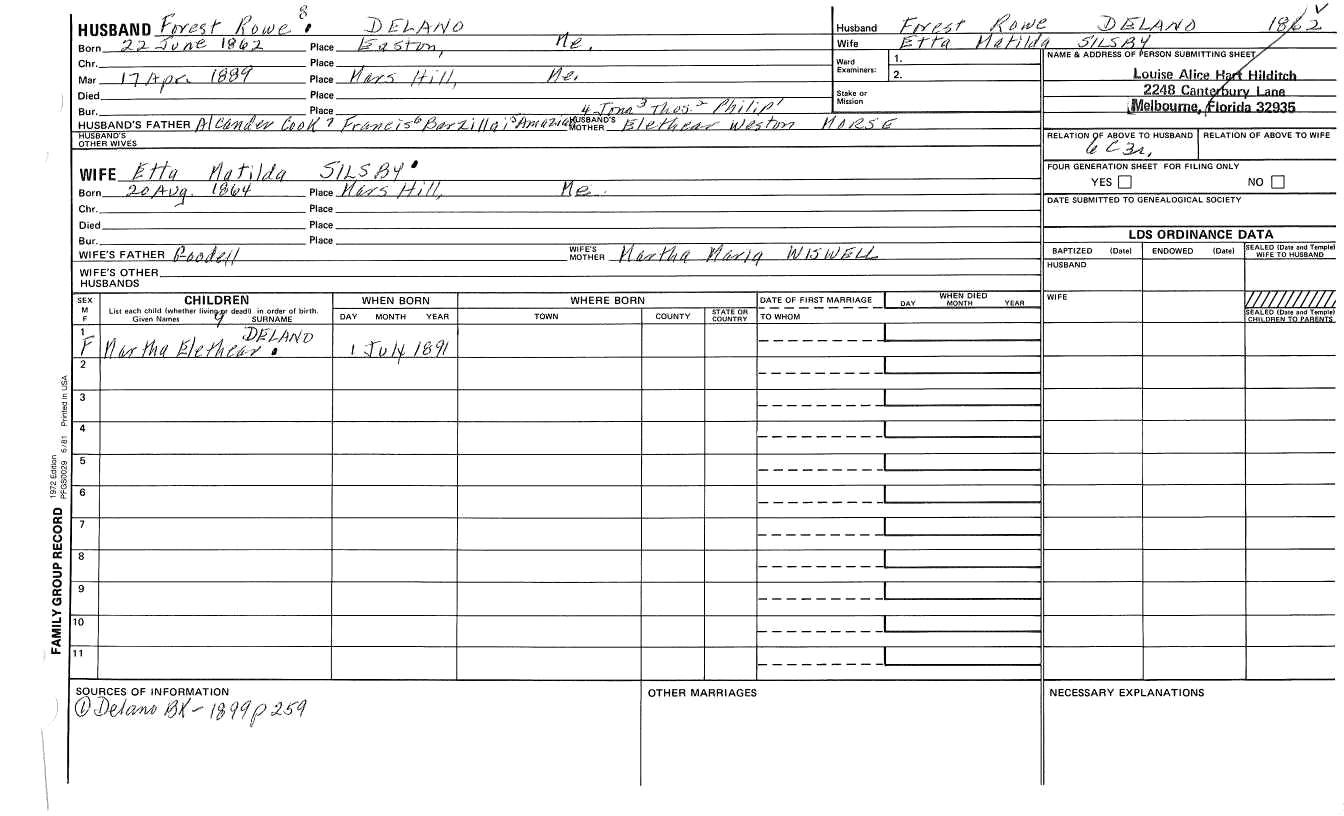 HUSBAND Forest Rowe 8 DELANO
Born 22 June 1862 Place Easton, Me.
Chr. Place
Mar 17 Apr. 1889 Place Mars Hill, Me.
Died Place
Bur. Place
4 Jona 3 Thos. 2 Philip 1
HUSBAND'S FATHER Alcander Cook 7 Francis 6 Barzillai 5 Amaziah HUSBAND'S MOTHER Elethear Weston MORSE
HUSBAND'S OTHER WIVES
WIFE Etta Matilda SILSBY
Born 20 Aug. 1864 Place Mars Hill, Me.
Chr. Place
Died Place
Bur. Place
WIFE'S FATHER Goodell WIFE'S MOTHER Martha Maria WISWELL
WIFE'S OTHER HUSBANDS
Husband Forest Rowe DELANO 1862 V
Wife Etta Matilda SILSBY
Ward Examiners: 1.
2.
Stake or Mission
NAME & ADDRESS OF PERSON SUBMITTING SHEET
Louise Alice Hart Hilditch
2248 Canterbury Lane
Melbourne, Florida 32935
RELATION OF ABOVE TO HUSBAND RELATION OF ABOVE TO WIFE
6C3r,
FOUR GENERATION SHEET FOR FILING ONLY
YES NO
DATE SUBMITTED TO GENEALOGICAL SOCIETY
LDS ORDINANCE DATA
BAPTIZED (Date) ENDOWED (Date) SEALED (Date and Temple) WIFE TO HUSBAND
HUSBAND
WIFE
SEALED (Date and Temple) CHILDREN TO PARENTS
SEX M F
CHILDREN
List each child (whether living or dead) in order of birth.
Given Names 9 SURNAME
WHEN BORN
DAY MONTH YEAR
WHERE BORN
TOWN COUNTY STATE OR COUNTRY
DATE OF FIRST MARRIAGE
TO WHOM
WHEN DIED
DAY MONTH YEAR
1 F Martha Elethear DELANO 1 July 1891
2
3
4
5
6
7
8
9
10
11
SOURCES OF INFORMATION
① Delano BK – 1899 p 259
OTHER MARRIAGES
NECESSARY EXPLANATIONS
FAMILY GROUP RECORD
1972 Edition
PFGS0029 6/81 Printed in USA